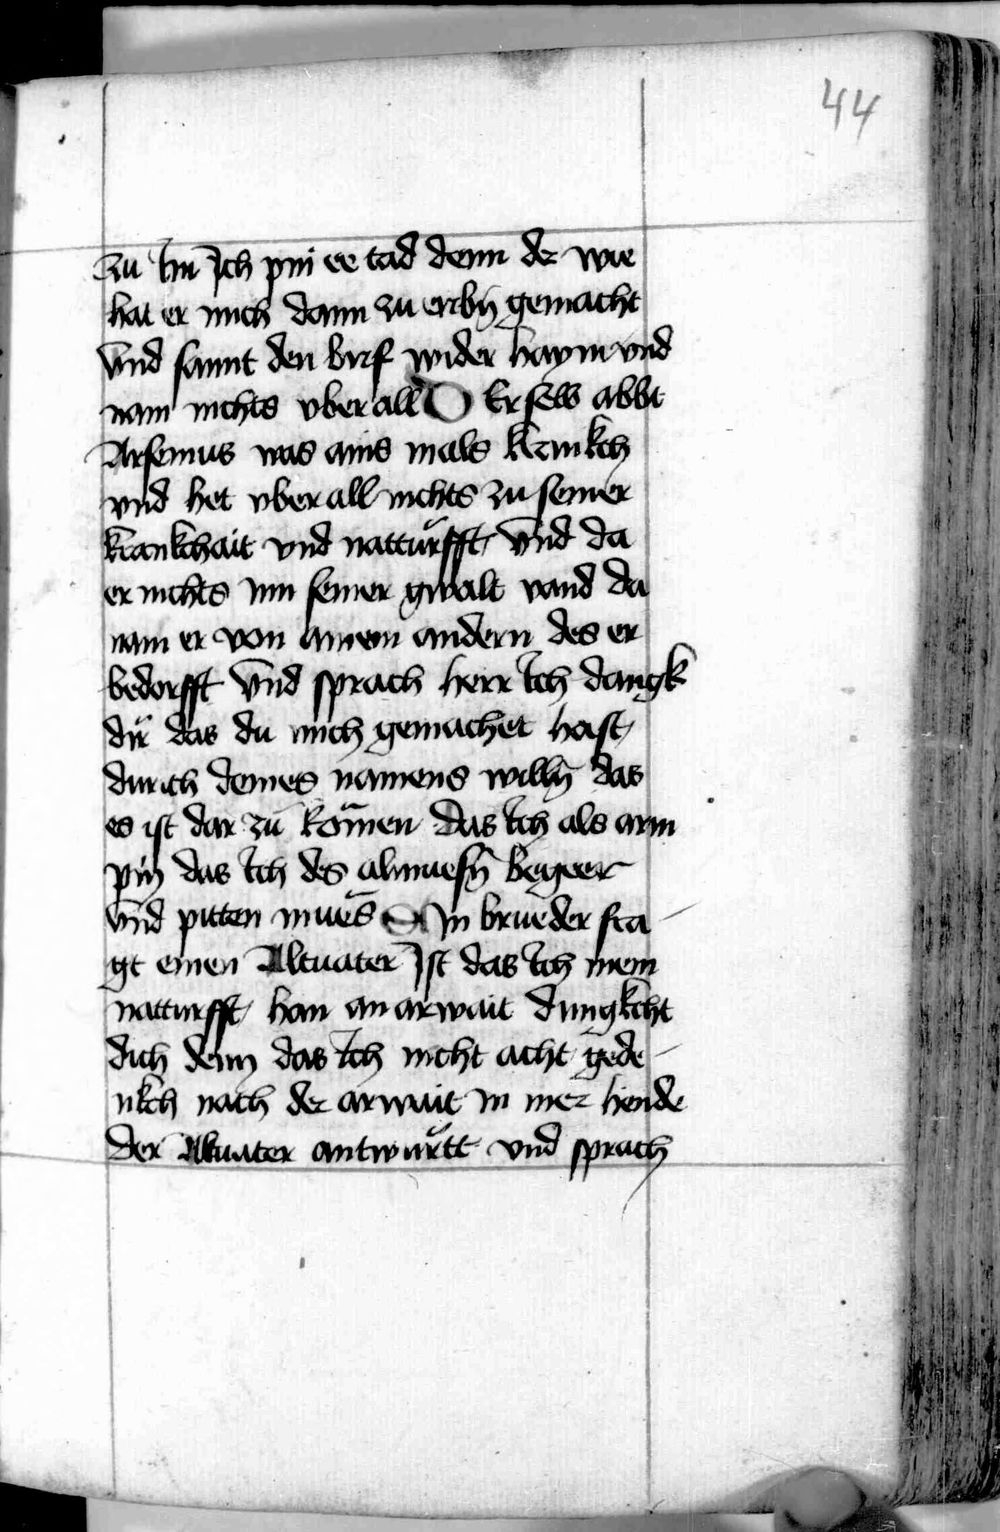 44
zu Im Ich pin ee tad denn der wie
hat er mich dann zu erbn̄ gemacht
Vnd sannt den brif wider haym vnd
nam nichts vber all D Er sew abbt
Arsenius was ains mals krankch
vnd het vber all nichts zu seiner
krankchait vnd natturfft Vnd da
er nichts inn seiner gwalt vand da
nam er von ainem andern des er
bedorfft Vnd sprach herr Ich dangk
dir das du mich gemachet hast
durich deines namens willn̄ das
es ist dar zu komen das Ich als arm
pin das Ich des almuesn̄ begeer
Vnd pitten mues Ain brueder fra
gt einen Altuater Ist das Ich mein
natturfft han an arwait dungkcht
dich denn das Ich nicht acht gede
nkch nach der arwait in mer hende
der Altuater antwurtt vnd sprach